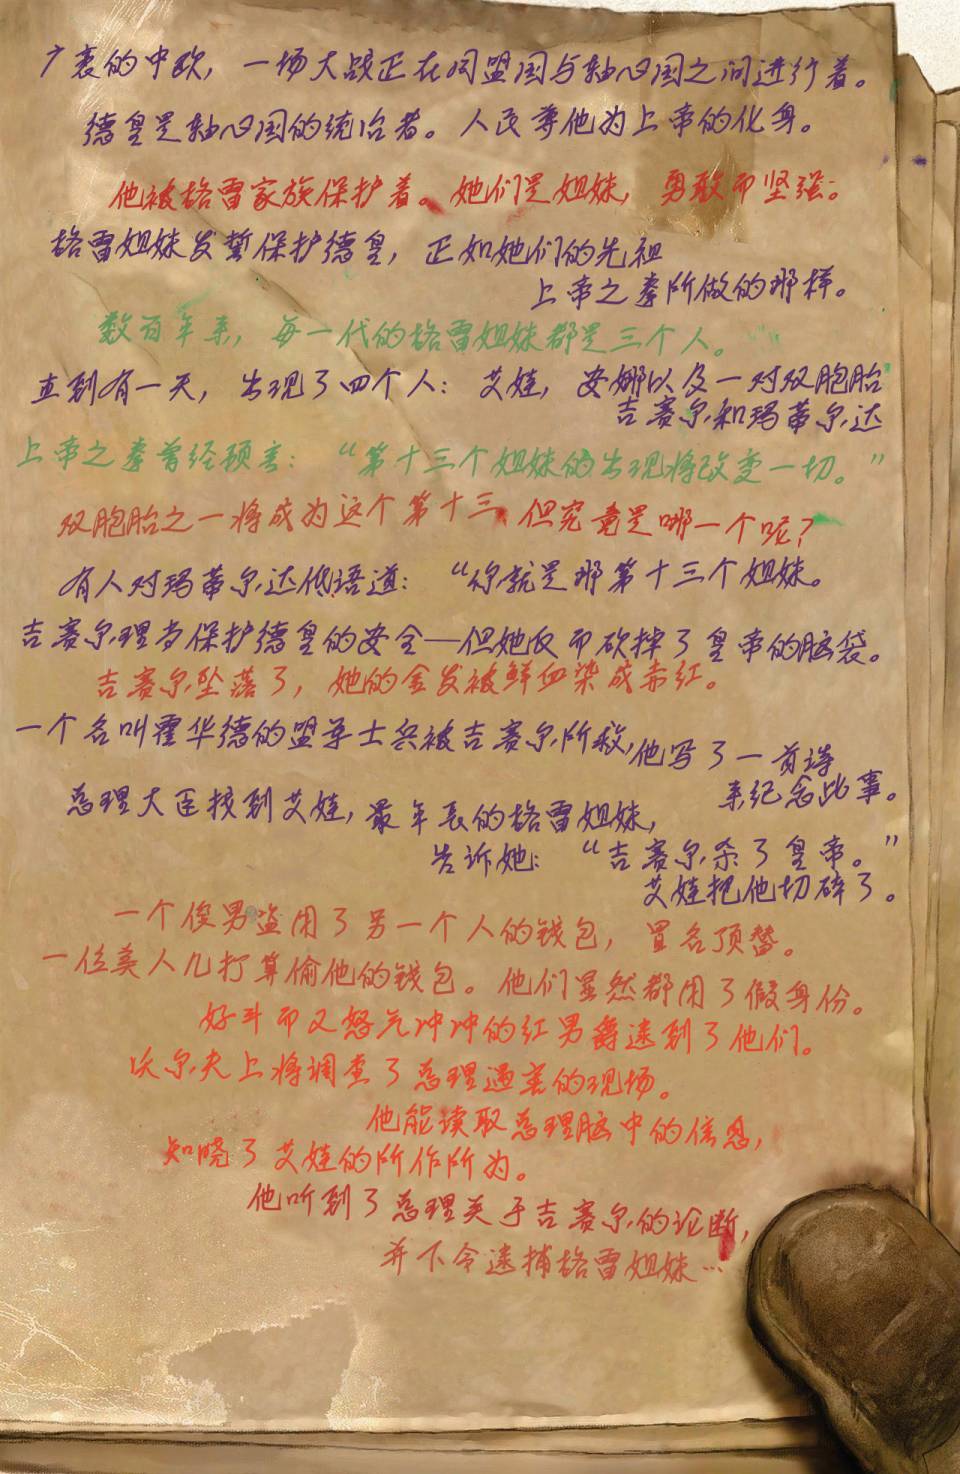 广袤的中欧，一场大战正在同盟国与轴心国之间进行着。
德皇是轴心国的统治者。人民尊他为上帝的化身。
他被格雷家族保护着。她们是姐妹，勇敢而坚强。
格雷姐妹发誓保护德皇，正如她们的先祖
上帝之拳所做的那样。
数百年来，每一代的格雷姐妹都是三个人。
直到有一天，出现了四个人：艾娃，安娜以及一对双胞胎
吉赛尔和玛蒂尔达
上帝之拳曾经预言：“第十三个姐妹的出现将改变一切。”
双胞胎之一将成为这个第十三，但究竟是哪一个呢？
有人对玛蒂尔达低语道：“你就是那第十三个姐妹。
吉赛尔理当保护德皇的安全——但她反而砍掉了皇帝的脑袋。
吉赛尔坠落了，她的金发被鲜血染成赤红。
一个名叫霍华德的盟军士兵被吉赛尔所救，他写了一首诗
来纪念此事。
总理大臣找到艾娃，最年长的格雷姐妹，
告诉她：“吉赛尔杀了皇帝。”
艾娃把他切碎了。
一个俊男盗用了另一个人的钱包，冒名顶替。
一位美人儿打算偷他的钱包。他们显然都用了假身份。
好斗而又怒气冲冲的红男爵逮到了他们。
沃尔夫上将调查了总理遇害的现场。
他能读取总理脑中的信息，
知晓了艾娃的所作所为。
他听到了总理关于吉赛尔的论断，
并下令逮捕格雷姐妹…